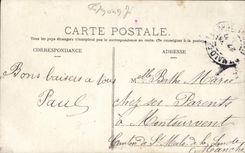 CARTE POSTALE
Tous les pays étrangers n'acceptent pas la correspondance au recto.
CORRESPONDANCE
ADRESSE
Bons baisers à tous
Paul
Mlle Berthe Marie
chez ses Parents
à Montsurvent
Canton de St Malo de la Lande
Manche